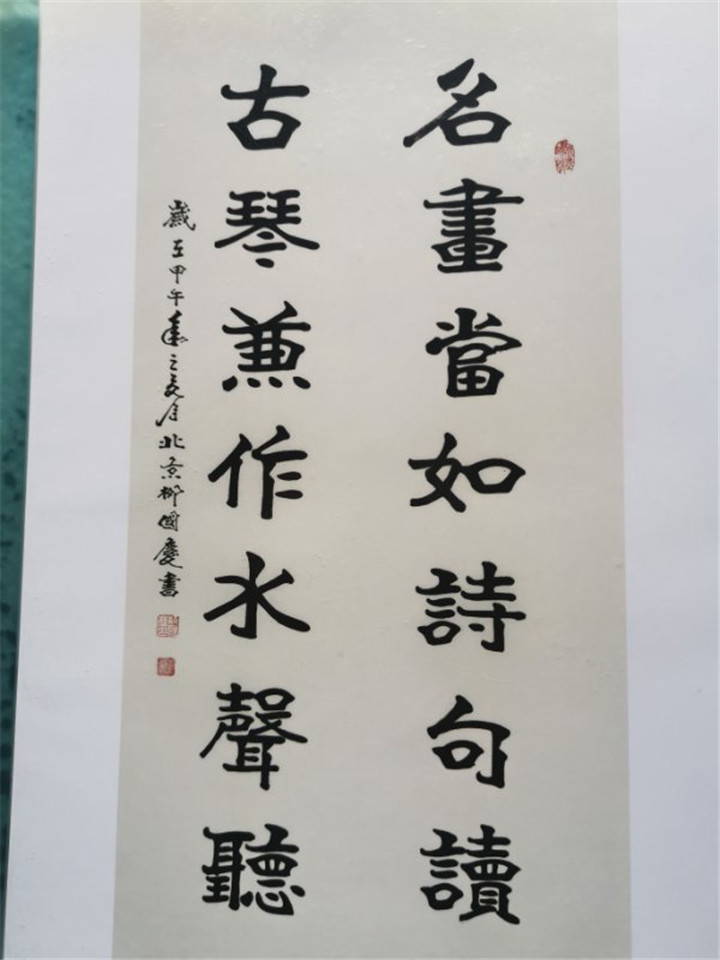 名畫當如詩句讀
古琴兼作水聲聽
歲在甲午春之夏月北京柳國慶書